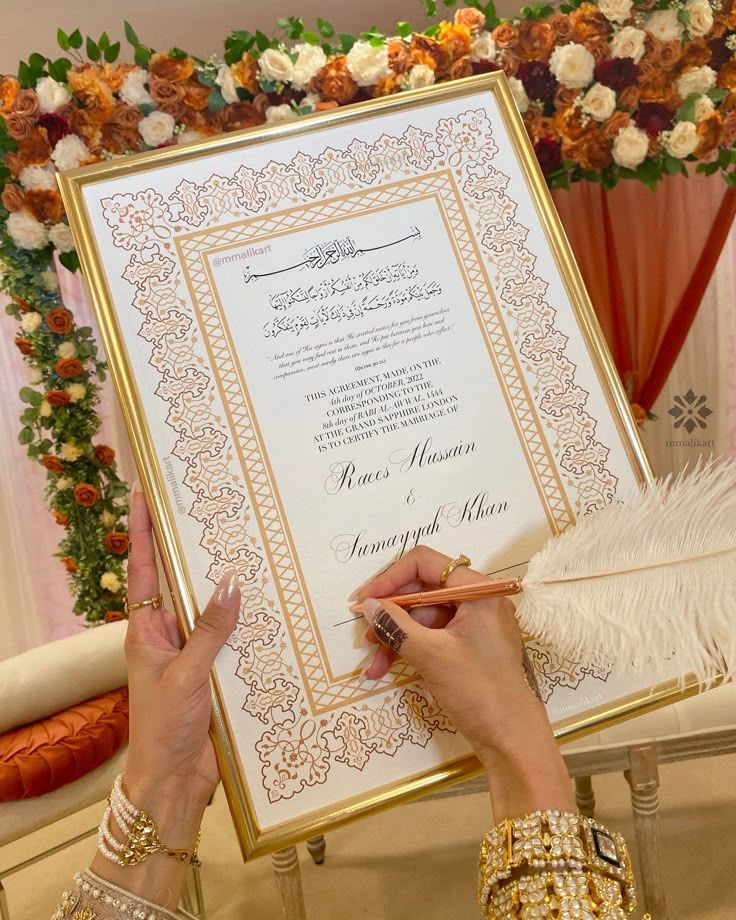 @mmalikart
بسم الله الرحمن الرحيم
وَمِنْ آيَاتِهِ أَنْ خَلَقَ لَكُم مِّنْ أَنفُسِكُمْ أَزْوَاجًا لِّتَسْكُنُوا إِلَيْهَا
وَجَعَلَ بَيْنَكُم مَّوَدَّةً وَرَحْمَةً إِنَّ فِي ذَٰلِكَ لَآيَاتٍ لِّقَوْمٍ يَتَفَكَّرُونَ
"And one of His signs is that He created mates for you from yourselves
that you may find rest in them, and He put between you love and
compassion, most surely there are signs in this for a people who reflect."
(Quran 30:21)
THIS AGREEMENT, MADE ON THE
4th day of OCTOBER, 2022
CORRESPONDING TO THE
8th day of RABI AL-AWWAL, 1444
AT THE GRAND SAPPHIRE LONDON
IS TO CERTIFY THE MARRIAGE OF
Raees Hussain
&
Sumayyah Khan
@mmalikart
@mmalikart
@mmalikart
mmalikart